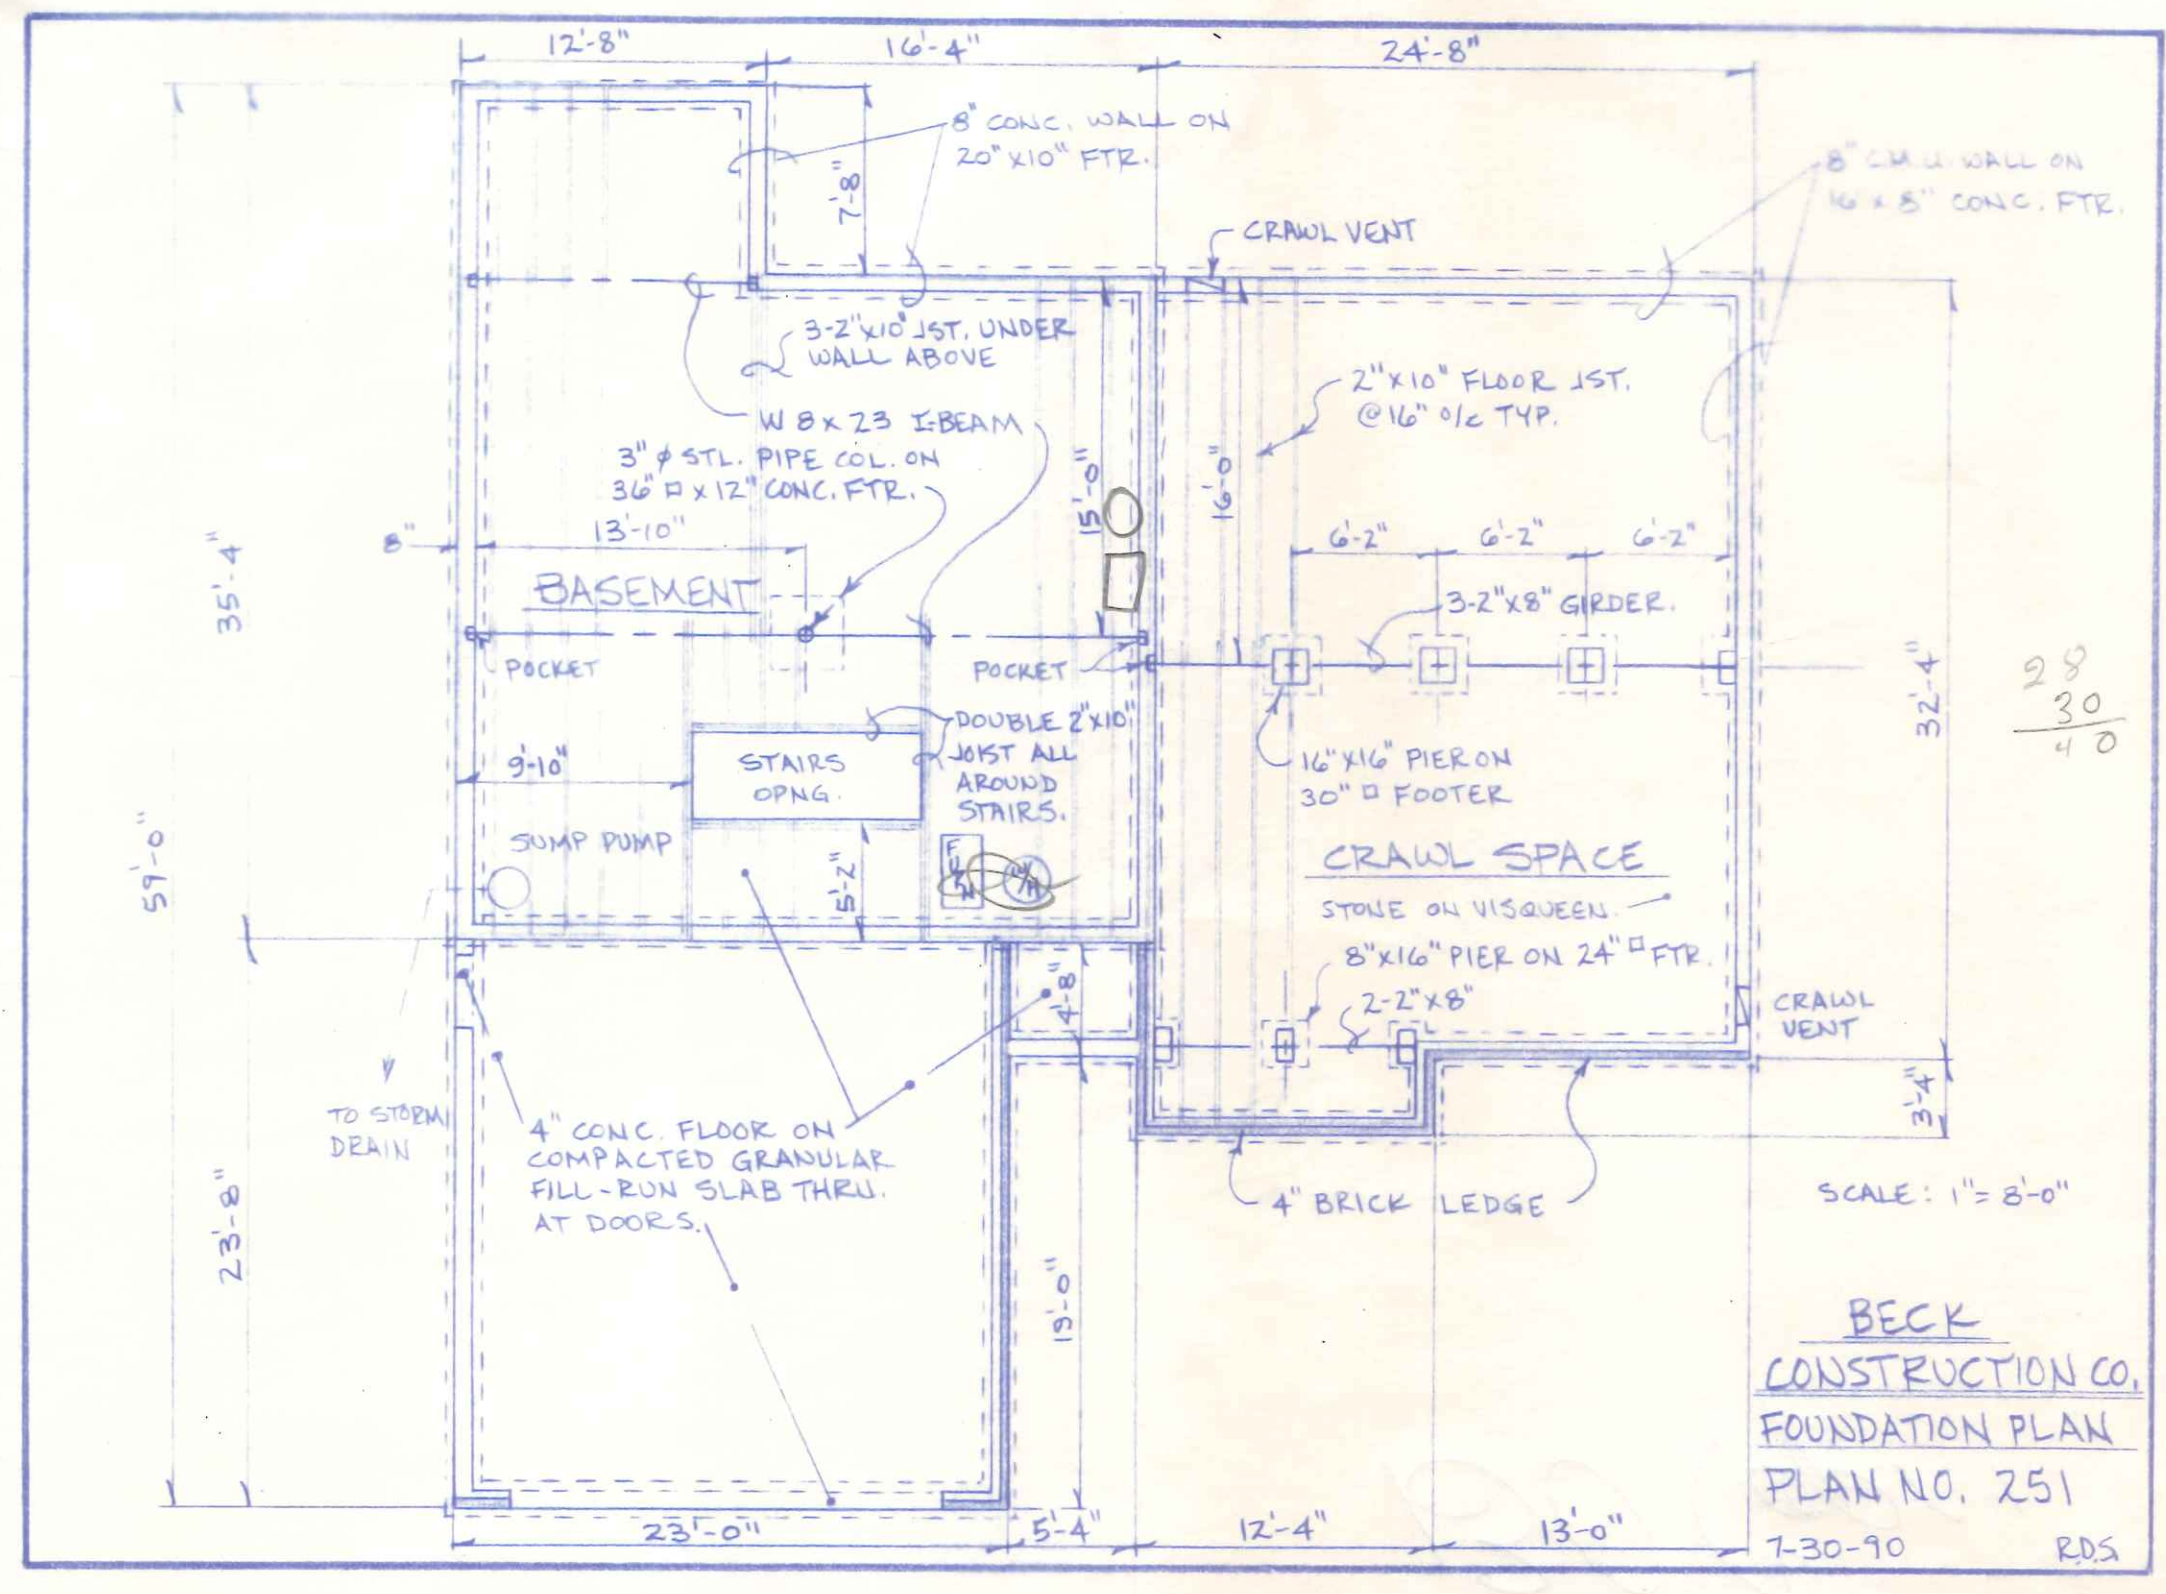 12'-8"
16'-4"
24'-8"
8" CONC. WALL ON
20"X10" FTR.
8" C.M.U. WALL ON
16 x 8" CONC. FTR.
7'-8"
CRAWL VENT
3-2"X10" JST. UNDER
WALL ABOVE
2"X10" FLOOR JST.
@16" o/c TYP.
W 8 x 23 I-BEAM
3" φ STL. PIPE COL. ON
36" □ x 12" CONC. FTR.
15'-0"
16'-0"
8"
13'-10"
6'-2"
6'-2"
6'-2"
35'-4"
BASEMENT
3-2"X8" GIRDER.
POCKET
POCKET
32'-4"
28
30
40
DOUBLE 2"X10"
JOIST ALL
AROUND
STAIRS.
9'-10"
STAIRS
OPNG.
16"X16" PIER ON
30" □ FOOTER
59'-0"
SUMP PUMP
5'-2"
FURN
W/H
CRAWL SPACE
STONE ON VISQUEEN.
8"X16" PIER ON 24" □ FTR.
4'-8"
2-2"X8"
CRAWL
VENT
3'-4"
TO STORM
DRAIN
4" CONC. FLOOR ON
COMPACTED GRANULAR
FILL-RUN SLAB THRU.
AT DOORS.
23'-8"
4" BRICK LEDGE
SCALE: 1"= 8'-0"
19'-0"
BECK
CONSTRUCTION CO.
FOUNDATION PLAN
PLAN NO. 251
7-30-90
R.D.S.
23'-0"
5'-4"
12'-4"
13'-0"